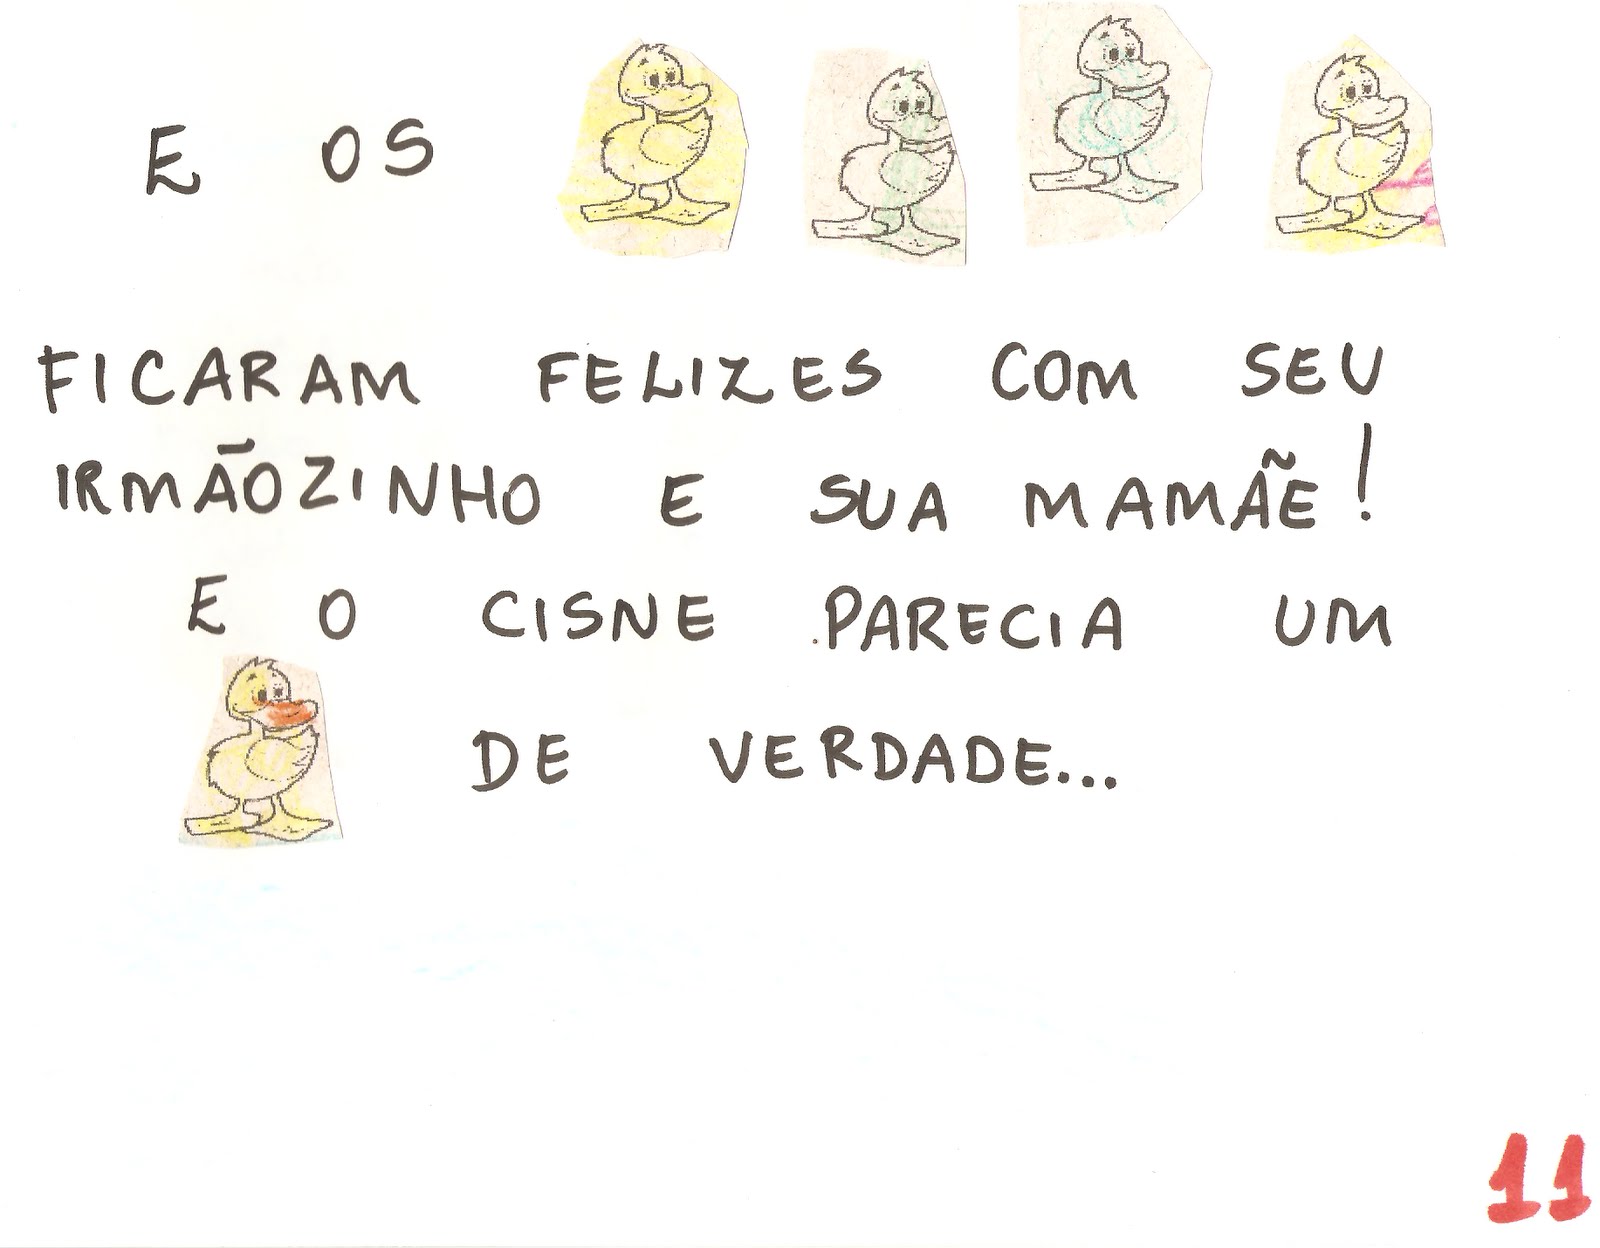 E OS
FICARAM FELIZES COM SEU
IRMÃOZINHO E SUA MAMÃE!
E O CISNE PARECIA UM
DE VERDADE...
11